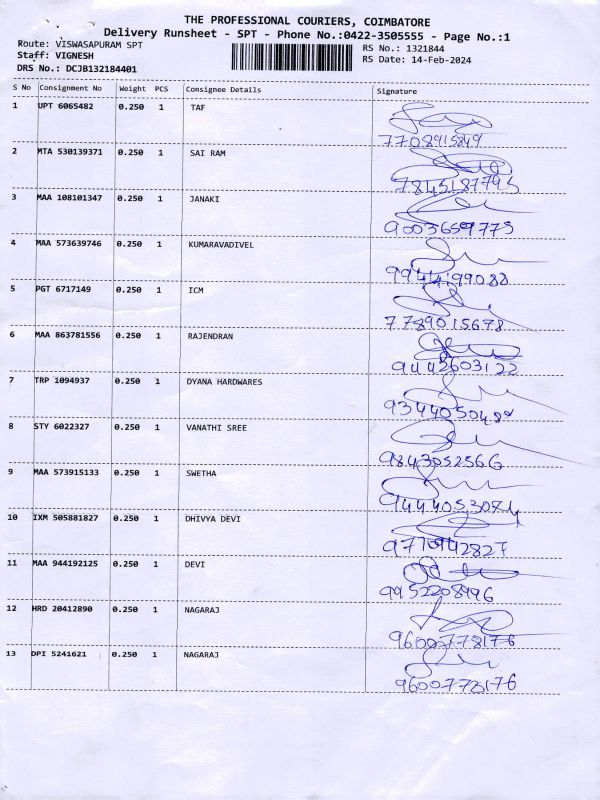 THE PROFESSIONAL COURIERS, COIMBATORE
Delivery Runsheet - SPT - Phone No.:0422-3505555 - Page No.:1
Route: VISWASAPURAM SPT
RS No.: 1321844
Staff: VIGNESH
RS Date: 14-Feb-2024
DRS No.: DCJB132184401
S No Consignment No Weight PCS Consignee Details Signature
1 UPT 6065482 0.250 1 TAF
7708915849
2 MTA 530139371 0.250 1 SAI RAM
7845187795
3 MAA 108101347 0.250 1 JANAKI
9003659775
4 MAA 573639746 0.250 1 KUMARAVADIVEL
9944199088
5 PGT 6717149 0.250 1 ICM
7789015678
6 MAA 863781556 0.250 1 RAJENDRAN
9442603122
7 TRP 1094937 0.250 1 DYANA HARDWARES
8 STY 6022327 0.250 1 VANATHI SREE
9843052566
9 MAA 573915133 0.250 1 SWETHA
10 IXM 505881827 0.250 1 DHIVYA DEVI
11 MAA 944192125 0.250 1 DEVI
9952208996
12 HRD 20412890 0.250 1 NAGARAJ
9600778176
13 DPI 5241621 0.250 1 NAGARAJ
9600778176